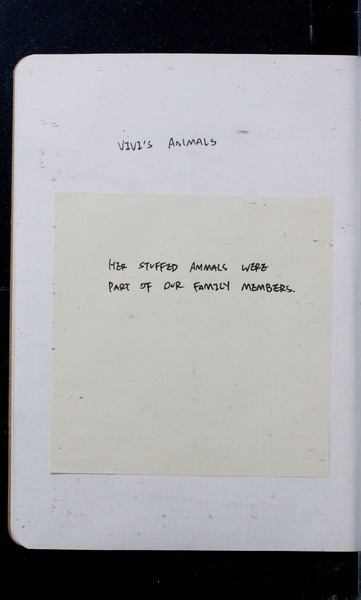 VIVI'S ANIMALS
HER STUFFED ANIMALS WERE
PART OF OUR FAMILY MEMBERS.